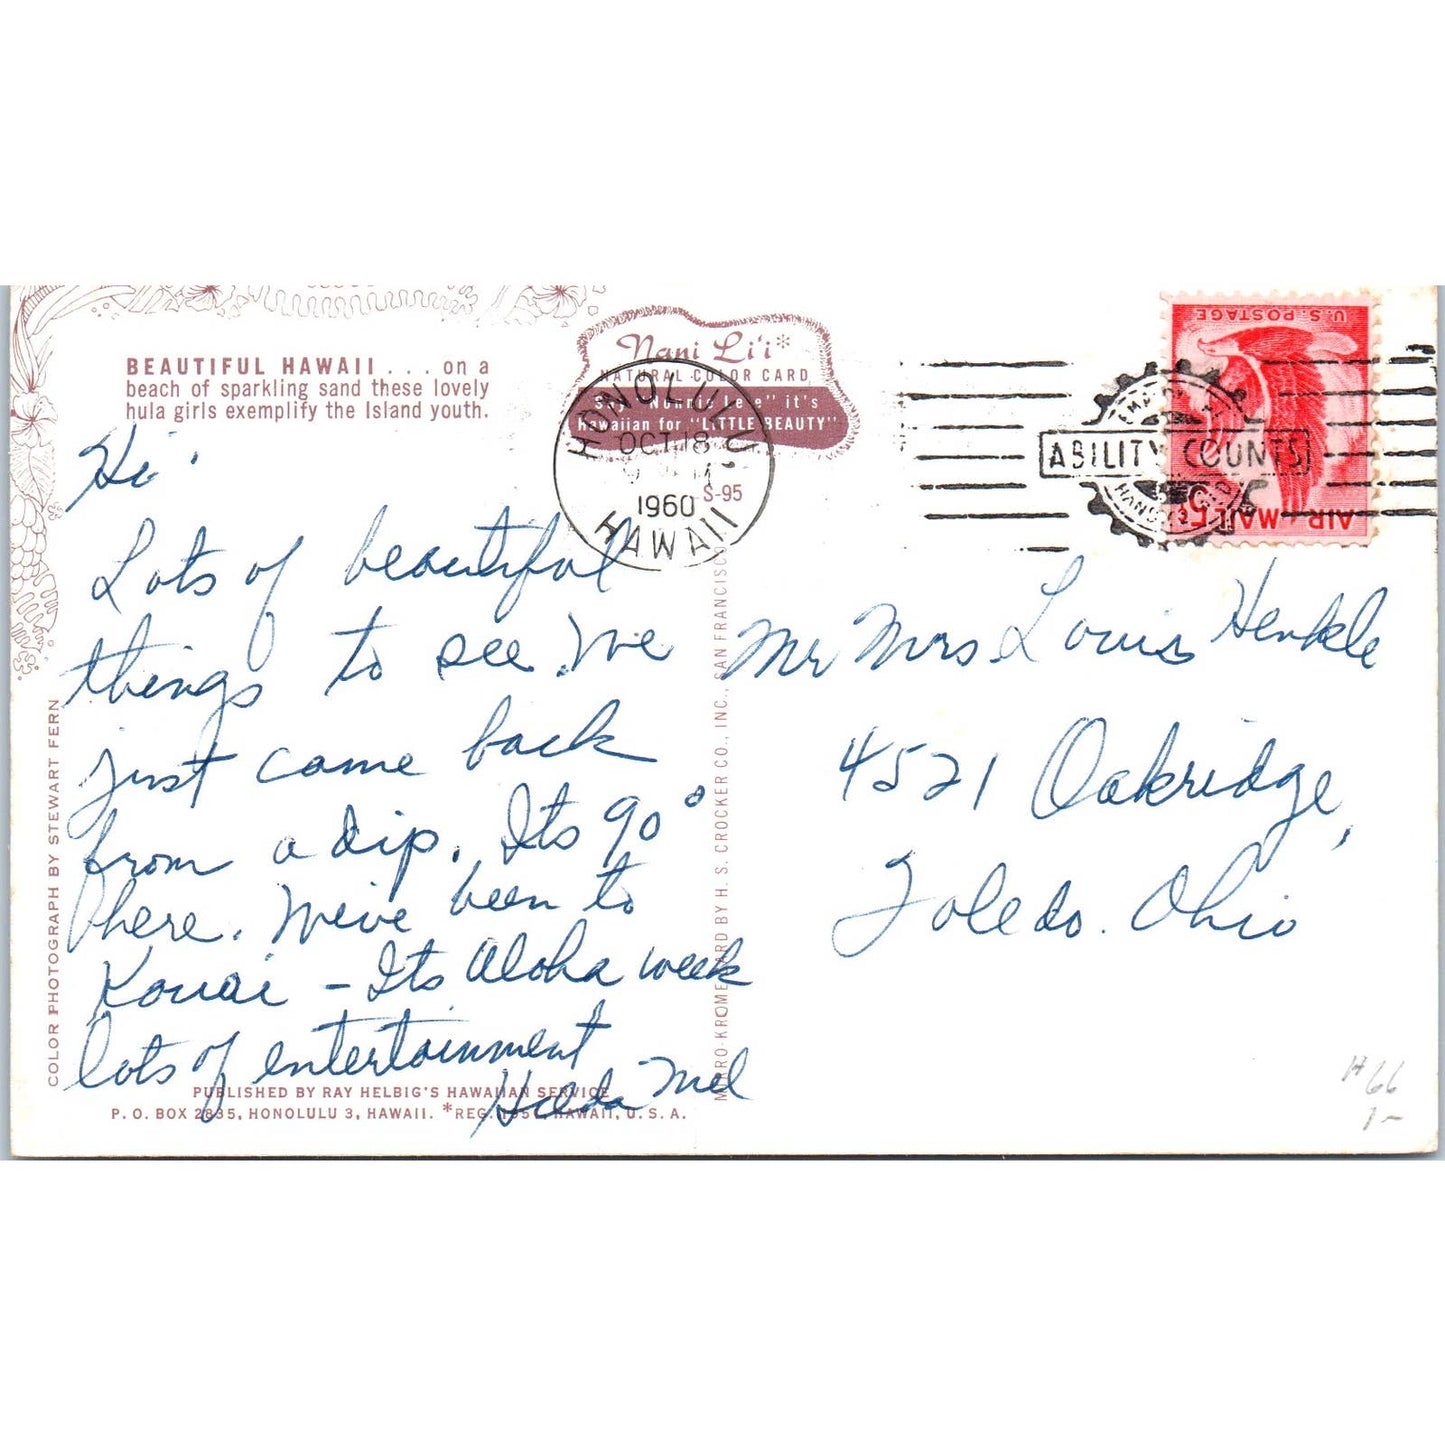 BEAUTIFUL HAWAII . . . on a
beach of sparkling sand these lovely
hula girls exemplify the Island youth.
Nani Li'i*
NATURAL COLOR CARD
Say "Nonnie Lee" it's
Hawaiian for "LITTLE BEAUTY"
S-95
HONOLULU
OCT 18
1960
HAWAII
ABILITY COUNTS
U.S. POSTAGE
AIR MAIL 5¢
Hi
Lots of beautiful
things to see. We
just came back
from a dip. Its 90°
here. We've been to
Kauai - Its Aloha week
lots of entertainment
Hilda Mel
Mr Mrs. Louis Henkle
4521 Oakridge,
Toledo. Ohio
COLOR PHOTOGRAPH BY STEWART FERN
MIRRO-KROME CARD BY H. S. CROCKER CO., INC., SAN FRANCISCO
PUBLISHED BY RAY HELBIG'S HAWAIIAN SERVICE
P. O. BOX 2835, HONOLULU 3, HAWAII. *REG. HAWAII, U. S. A.
H66
1-